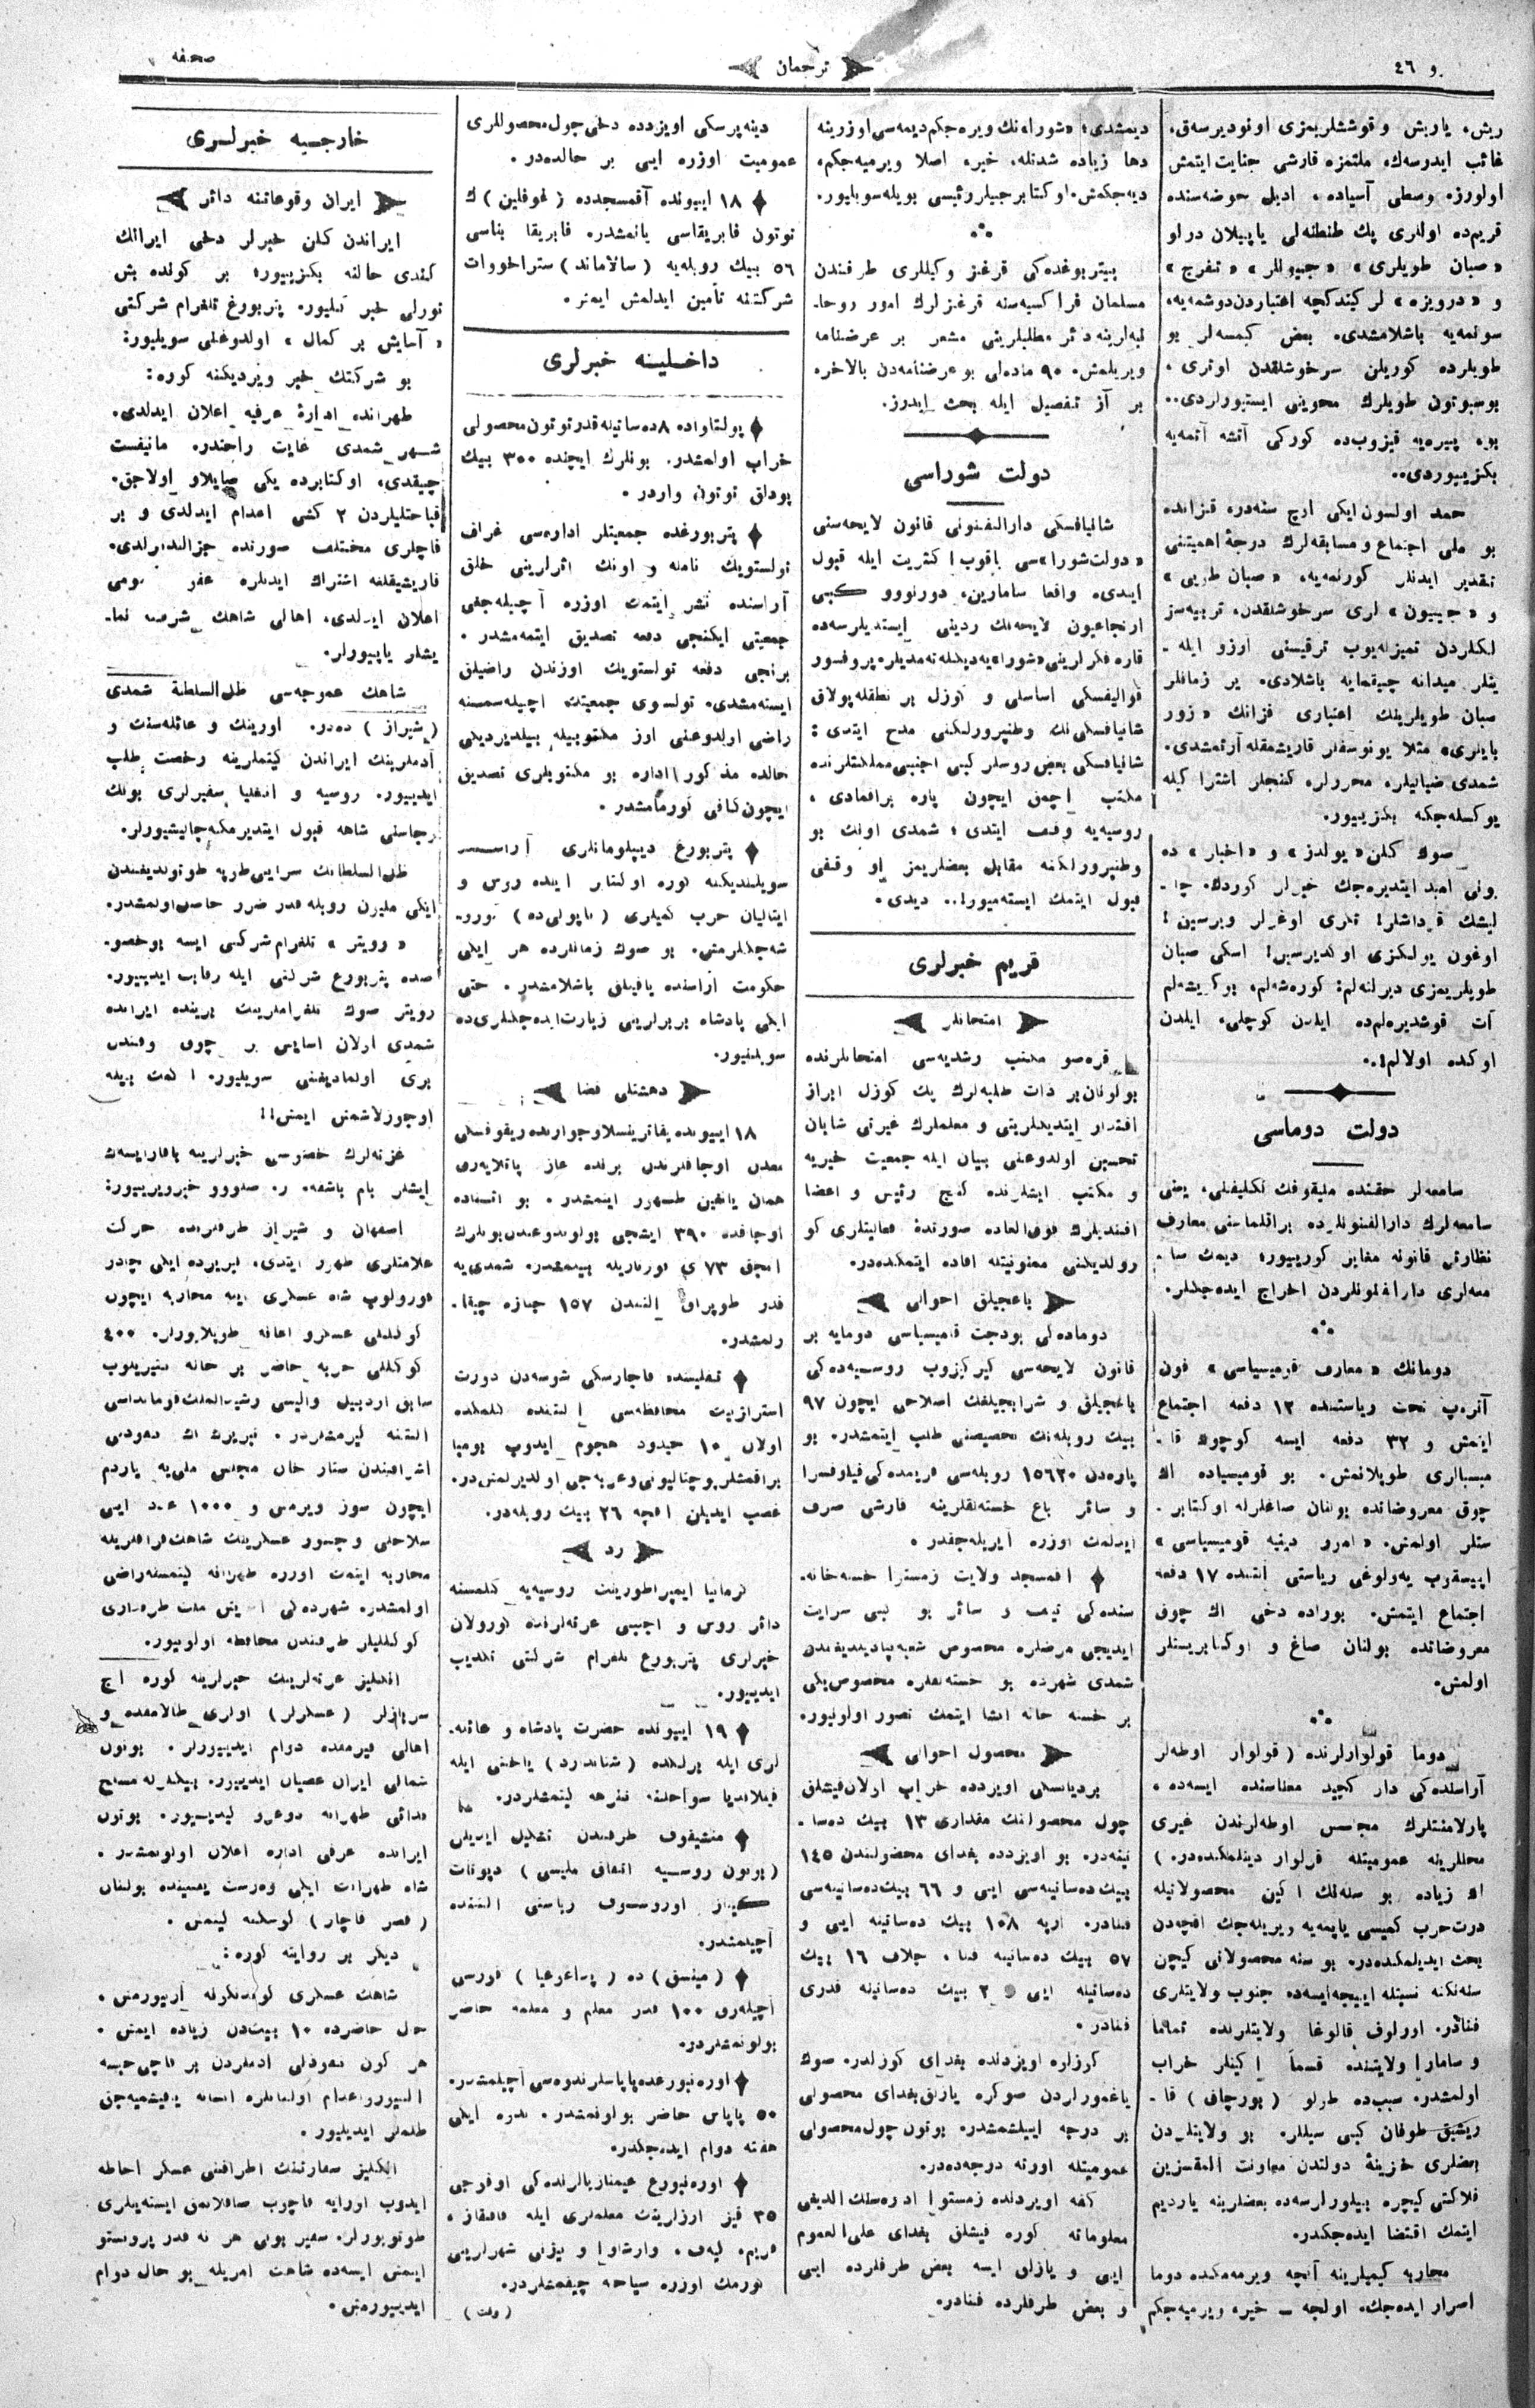 و ٤٦
ترجمان
صحفه
ریش، یاریش و قوششلریمزی اونودیرسه‌ق،
غائب ایدرسه‌ك، ملتمزه قارشی جنایت ایتمش
اولورز. وسطی آسیاده، ادیل حوضه‌سنده
قریم‌ده اولری پك طنطنه‌لی یاپیلان دراو
«صبان طویلری» «جیینلر» «تفرج»
و «درویزه» لر کیتدکچه اعتباردن دوشمه‌یه،
سونمه‌یه باشلامشدی. بعض کیمسه‌لر بو
طویلرده کوریلن سرخوشلقدن اوتری،
بوسبوتون طویلرك محوینی ایستیورلردی..
بو، پیره‌یه قیزوب‌ده کورکی آتشه آتمه‌یه
بکزییوردی..
حمد اولسون ایکی اوچ سنه‌در، قزانده
بو ملی اجتماع و مسابقه‌لرك درجهٔ اهمیتنی
تقدیر ایدنلر کورنمه‌یه، «صبان طویی»
و «جییون» لری سرخوشلقدن، تربیه‌سز
لكلردن تمیزله‌یوب ترقیسنی آرزو ایله‌ـ
ینلر میدانه چیقمایه باشلادی. بر زمانلر
صبان طویلرینك اعتباری قزانك «زور
بایلری» مثلا یونوسفلر قاریشمقله آرتمشدی.
شمدی ضیالیلر، محررلر، کنجلر اشتراکیله
یوکسله‌جکه بکزییور.
صوك کلن «یولدز» و «اخبار» ده
بونی امید ایتدیره‌جك خبرلر کوردك. چا‌ـ
لیشك قرداشلر! تکری اوغرلر ویرسین!
اوغون یولکزی اوکدیرسین! اسکی صبان
طویلریمزی دیرلته‌لم: کوره‌شه‌لم، یوکریشه‌لم
آت قوشدیره‌لم‌ده ایلدن کوچلی، ایلدن
اوکده اولالم!..
دولت دوماسی
سامعه‌لر حقنده ملیقوفك تکلیفنی، یعنی
سامعه‌لرك دارالفنونلرده براقلماسنی معارف
نظارتی قانونه مغایر کورییور، دیمك سا‌ـ
معه‌لری دارالفنونلردن اخراج ایده‌جکلر.
دومانك «معارف قومیسیاسی» فون
آنره‌پ تحت ریاستنده ١٢ دفعه اجتماع
ایتمش و ٣٢ دفعه ایسه کوچوك قا‌ـ
میسیالری طوپلانمش. بو قومیسیاده اك
چوق معروضاتده بولنان صاغلرله اوکتابر‌ـ
ستلر اولمش. «امور دینیه قومیسیاسی»
اپیسقوپ یه‌ولوغی ریاستی آلتنده ١٧ دفعه
اجتماع ایتمش. بوراده دخی اك چوق
معروضاتده بولنان صاغ و اوکتابریستلر
اولمش.
دوما قولوارلرنده (قولوار اوطه‌لر
آراسنده‌کی دار کچید معناسنده ایسه‌ده،
پارلامنتلرك مجلس اوطه‌لرندن غیری
محللرینه عمومیتله قولوار دینلمکده‌در.)
اك زیاده بو سنه‌نك اکین محصولاتیله
درت حرب کمیسی یاپمه‌یه ویریله‌جك اقچه‌دن
بحث ایدیلمکده‌در. بو سنه محصولاتی کچن
سنه‌نکنه نسبتله اییجه ایسه‌ده جنوب ولایتلری
فنادر. اورلوف قالوغا ولایتلرنده تماما
و سامارا ولایتنده قسماً اکینلر خراب
اولمشدر. سببده طولو (بورچاق) قا‌ـ
ریشیق طوفان کبی سیللر. بو ولایتلردن
بعضلری خزینهٔ دولتدن معاونت المقسزین
فلاکتی کچیره بیلورلرسه‌ده بعضلرینه یاردیم
ایتمك اقتضا ایده‌جکدر.
محاربه کمیلرینه آقچه ویرمه‌مکده دوما
اصرار ایده‌جك. اولجه ـ خیر، ویرمیه‌جکم
دیمشدی؛ «شورا»نك ویره‌جکم دیمه‌سی اوزرینه
دها زیاده شدتله، خیر، اصلا ویرمیه‌جکم،
دیه‌جکمش. اوکتابرجیلر رئیسی بویله سویلیور.
پیتربوغده‌کی قرغز وکیللری طرفندن
مسلمان فراکسیه‌سنه قرغزلرك امور روحا‌ـ
نیه‌لرینه دائر مطلبلرینی مشعر بر عرضنامه
ویریلمش. ٩٠ ماده‌لی بو عرضنامه‌دن بالاخره
بر آز تفصیل ایله بحث ایدرز.
دولت شوراسی
شانیافسکی دارالفنونی قانون لایحه‌سنی
«دولت شورا»سی یاقوب اکثریت ایله قبول
ایتدی. واقعا سامارین، دورنووو کبی
ارتجاعیون لایحه‌نك ردینی ایستدیلرسه‌ده
قاره فکرلرینی «شورا»یه دیکله‌ته‌مدیلر. پروفسور
قوالیفسکی اساسلی و کوزل بر نطقله پولاق
شانیافسکی‌نك وطنپرورلکنی مدح ایتدی:
شانیافسکی بعض روسلر کبی اجنبی مملکتلرنده
مکتب اچمق ایچون پاره براقمادی،
روسیه‌یه وقف ایتدی؛ شمدی اونك بو
وطنپرورلکنه مقابل بعضلریمز او وقفی
قبول ایتمك ایسته‌میور!.. دیدی.
قریم خبرلری
امتحانلر
قره‌صو مکتب رشدیه‌سی امتحانلرنده
بولونان بر ذات طلبه‌لرك پك کوزل ابراز
اقتدار ایتدیکلرینی و معلملرك غیرتی شایان
تحسین اولدوغنی بیان ایله جمعیت خیریه
و مکتب ایشلرنده کنج رئیس و اعضا
افندیلرك فوق‌العاده صورتده فعالیتلری کو
رولدیکنی ممنونیتله افاده ایتمکده‌در.
باغجیلق احوالی
دوماده‌کی بودجت قمیسیاسی دومایه بر
قانون لایحه‌سی کیرکیزوب روسیه‌ده‌کی
باغجیلق و شرابجیلقك اصلاحی ایچون ٩٧
بیك روبله‌نك تخصیصنی طلب ایتمشدر. بو
پاره‌دن ١٥٦٢٠ روبله‌سی قریمده‌کی فیلوقسرا
و سائر باغ خسته‌لقلرینه قارشی صرف
ایدلمك اوزره آیریله‌جقدر.
اقمسجد ولایت زمستوا خسته‌خانه‌ـ
سنده‌کی تیف و سائر بو کبی سرایت
ایدیجی مرضلره مخصوص شعبه قپادیلدیغندن
شمدی شهرده بو خسته‌لقلره مخصوص یکی
بر خسته خانه انشا ایتمك تصور اولونیور.
محصول احوالی
بردیانسکی اویزده خراب اولان قیشلق
چول محصولاتك مقداری ١٣ بیك ده‌سا‌ـ
تینه‌در. بو اویزده بغدای محصولندن ١٤٥
بیك ده‌ساتینه‌سی ایی و ٦٦ بیك ده‌ساتینه‌سی
فنادر. ارپه ١٠٨ بیك ده‌ساتینه ایی و
٥٧ بیك ده‌ساتینه فنا، جلاف ١٦ بیك
ده‌ساتینه ایی و ٢ بیك ده‌ساتینه قدری
فنادر.
کوزلوه اویزدنده بغدای کوزلدر. صوك
یاغمورلردن صوکره یازلق بغدای محصولی
بر درجه اییلشمشدر. بوتون چول محصولی
عمومیتله اورته درجه‌ده‌در.
کفه اویزدنده زمستوا اداره‌سنك الدیغی
معلوماته کوره قیشلق بغدای علی‌العموم
ایی و یازلق ایسه بعض طرفلرده ایی
و بعض طرفلرده فنادر.
دینه‌پرسکی اویزدده دخی چول محصوللری
عمومیت اوزره ایی بر حالده‌در.
١٨ ایییونده آقمسجدده (غوفلین) ك
توتون فابریقاسی یانمشدر. فابریقا بناسی
٥٦ بیك روبله‌یه (سالاماندر) ستراخووات
شرکتنه تأمین ایدلمش ایمش.
داخلیه خبرلری
پولتاواده ٨ ده‌ساتینه قدر توتون محصولی
خراب اولمشدر. بونلرك ایچنده ٣٠٠ بیك
بوداق توتون واردر.
پتربورغده جمعیتلر اداره‌سی غراف
تولستویك نامنه و اونك اثرلرینی خلق
آراسنده نشر ایتمك اوزره آچیله‌جق
جمعیتی ایکنجی دفعه تصدیق ایتمه‌مشدر.
برنجی دفعه تولستویك اوزندن راضیلق
ایسته‌مشدی. تولستوی جمعیتك اچیله‌سنه
راضی اولدوغنی اوز مکتوبیله بیلدیردیکی
حالده مذکور اداره بو مکتوبلری تصدیق
ایچون کافی کورمامشدر.
پتربورغ دیپلوماتلری آراسنده
سویلندیکنه کوره اوکتابر آینده روس و
ایتالیان حرب کمیلری (ناپولی‌ده) کورو‌ـ
شه‌جکلرمش. بو صوك زمانلرده هر ایکی
حکومت آراسنده یاقینلق باشلامشدر. حتی
ایکی پادشاه بربرلرینی زیارت ایده‌جکلری‌ده
سویلنیور.
دهشتلی قضا
١٨ ایییونده یقاترینسلاو جوارنده ریقوفسکی
معدن اوجاقلرندن برنده غاز پاتلایه‌رق
همان یانغین ظهور ایتمشدر. بو اثناده
اوجاقده ٣٩٠ ایشجی بولوندوغندن بونلرك
انجق ٧٣ ی قورتاریله بیلمشدر. شمدی‌یه
قدر طوپراق التندن ١٥٧ جنازه چیقا‌ـ
رلمشدر.
تفلیسده قاجارسکی شوسه‌دن دورت
استراژنیك محافظه‌سی التنده کلمکده
اولان ١٠ حیدود هجوم ایدوب بومبا
براقمشلر بوچتالیونی و عربه‌جی اولدیرلمش‌در.
غصب ایدیلن اقچه ٢٦ بیك روبله‌در.
رد
کرمانیا ایمپراطورینك روسیه‌یه کلمسنه
دائر روس و اجنبی غزته‌لرنده کورولان
خبرلری پتربورغ تلغرام شرکتی تکذیب
ایدییور.
١٩ ایییونده حضرت پادشاه و عائله‌ـ
لری ایله برلکده (شتاندرد) یاختی ایله
فینلاندیا سواحلنه تنزهه کیتمشلردر.
منشیقوف طرفندن تشکیل ایدیلن
(بوتون روسیه اتفاق ملیسی) دپوتات
کنیاز اوروسوف ریاستی التنده
آچیلمشدر.
(مینسق) ده (پداغوغیا) قورسی
آچیله‌رق ١٠٠ قدر معلم و معلمه حاضر
بولونمشلردر.
اوره‌نبورغده پاپاسلر ندوه‌سی آچیلمشدر.
٥٠ پاپاس حاضر بولونمشدر. ندوه ایکی
هفته دوام ایده‌جکدر.
اوره‌نبورغ غیمنازیالرنده‌کی اوقوجی
٣٥ قیز اوزلرینك معلملری ایله قافقاز،
قریم، کیه‌ف، وارشاوا و نیژنی شهرلرینی
کورمك اوزره سیاحه چیقمشلردر.
(وقت)
خارجیه خبرلری
ایران وقوعاتنه دائر
ایراندن کلن خبرلر دخی ایرانك
کندی حالنه بکزییور؛ بر کونده بش
تورلی خبر کلیور. پتربورغ تلغرام شرکتی
«آسایش بر کمال» اولدوغنی سویلیور:
بو شرکتك خبر ویردیکنه کوره:
طهرانده ادارهٔ عرفیه اعلان ایدلدی.
شهر شمدی غایت راحتدر. مانیفست
چیقدی، اوکتابرده یکی صایلاو اولاجق.
قباحتلیلردن ٢ کشی اعدام ایدلدی و بر
قاچلری مختلف صورتده جزالندیرلدی.
قاریشیقلغه اشتراك ایدنلره عفو عمومی
اعلان ایدلدی. اهالی شاهك شرفنه نما‌ـ
یشلر یاپیورلر.
شاهك عموجه‌سی ظل‌السلطنة شمدی
(شیراز) ده‌در. اورینك و عائله‌سنك و
آدملرینك ایراندن کیتملرینه رخصت طلب
ایدییور. روسیه و انغلیا سفیرلری بونك
رجاسنی شاهه قبول ایتدیرمکه چالیشیورلر.
ظل‌السلطانك سرایی طوپه طوتولدیغندن
ایکی ملیون روبله قدر ضرر حاصل اولمشدر.
«رویتر» تلغرام شرکتی ایسه بوخصو‌ـ
صده پتربورغ شرکتی ایله رقابت ایدییور.
رویتر صوك تلغراملرینك برینده ایرانده
شمدی اولان اسایش بر چوق وقتدن
بری اولمادیغنی سویلیور. اکمك بیله
اوجوزلاشمش ایمش!!
غزته‌لرك خصوصی خبرلرینه باقارایسه‌ك
ایشلر بام باشقه. ر. صلووو خبر ویرییور:
اصفهان و شیراز طرفلرنده حرکت
علامتلری ظهور ایتدی. تبریزده ایکی چادر
قورولوب شاه عسکری ایله محاربه ایچون
کوکللی عسکر و اعانه طوپلایورلر. ٤٠٠
کوکللی حربه حاضر بر حاله کتیریلوب
سابق اردبیل والیسی رشیدالملك قومانداسی
التنه کیرمشلردر. تبریزك اك نفوذلی
اشرافندن ستار خان مجلس ملی‌یه یاردم
ایچون سوز ویرمش و ١٠٠٠ عدد ایی
سلاحلی و جسور عسکرینك شاهك قزاقلریله
محاربه ایتمك اوزره طهرانه کیتمسنه راضی
اولمشدر. شهرده‌کی آسایش ملت طرفداری
کوکللیلر طرفندن محافظه اولونیور.
انکلیز غزته‌لرینك خبرلرینه کوره آچ
سربازلر (عسکرلر) اولری طالامقده و
اهالی قیرمقده دوام ایدییورلر. بوتون
شمالی ایران عصیان ایدییور. بیکلرله مسلح
فدائی طهرانه دوغرو کیدییور. بوتون
ایرانده عرفی اداره اعلان اولونمشدر.
شاه طهرانك ایکی وه‌رست یقیننده بولنان
(قصر قاجار) کوشکنه کیتمش.
دیکر بر روایته کوره:
شاهك عسکری کوندنکونه آزییورمش.
حال حاضرده ١٠ بیك‌دن زیاده ایمش.
هر کون نفوذلی ادملردن بر قاچی حبسه
الینیور، اعدام اولنانلره
ظلملر ایدیلیور.
انکلیز سفارتنك اطرافنی عسکر احاطه
ایدوب اورایه قاچوب صاقلانمق ایسته‌ینلری
طوتویورلر. سفیر بونی هر نه قدر پروتستو
ایتمش ایسه‌ده شاهك امریله بو حال دوام
ایدییورمش.